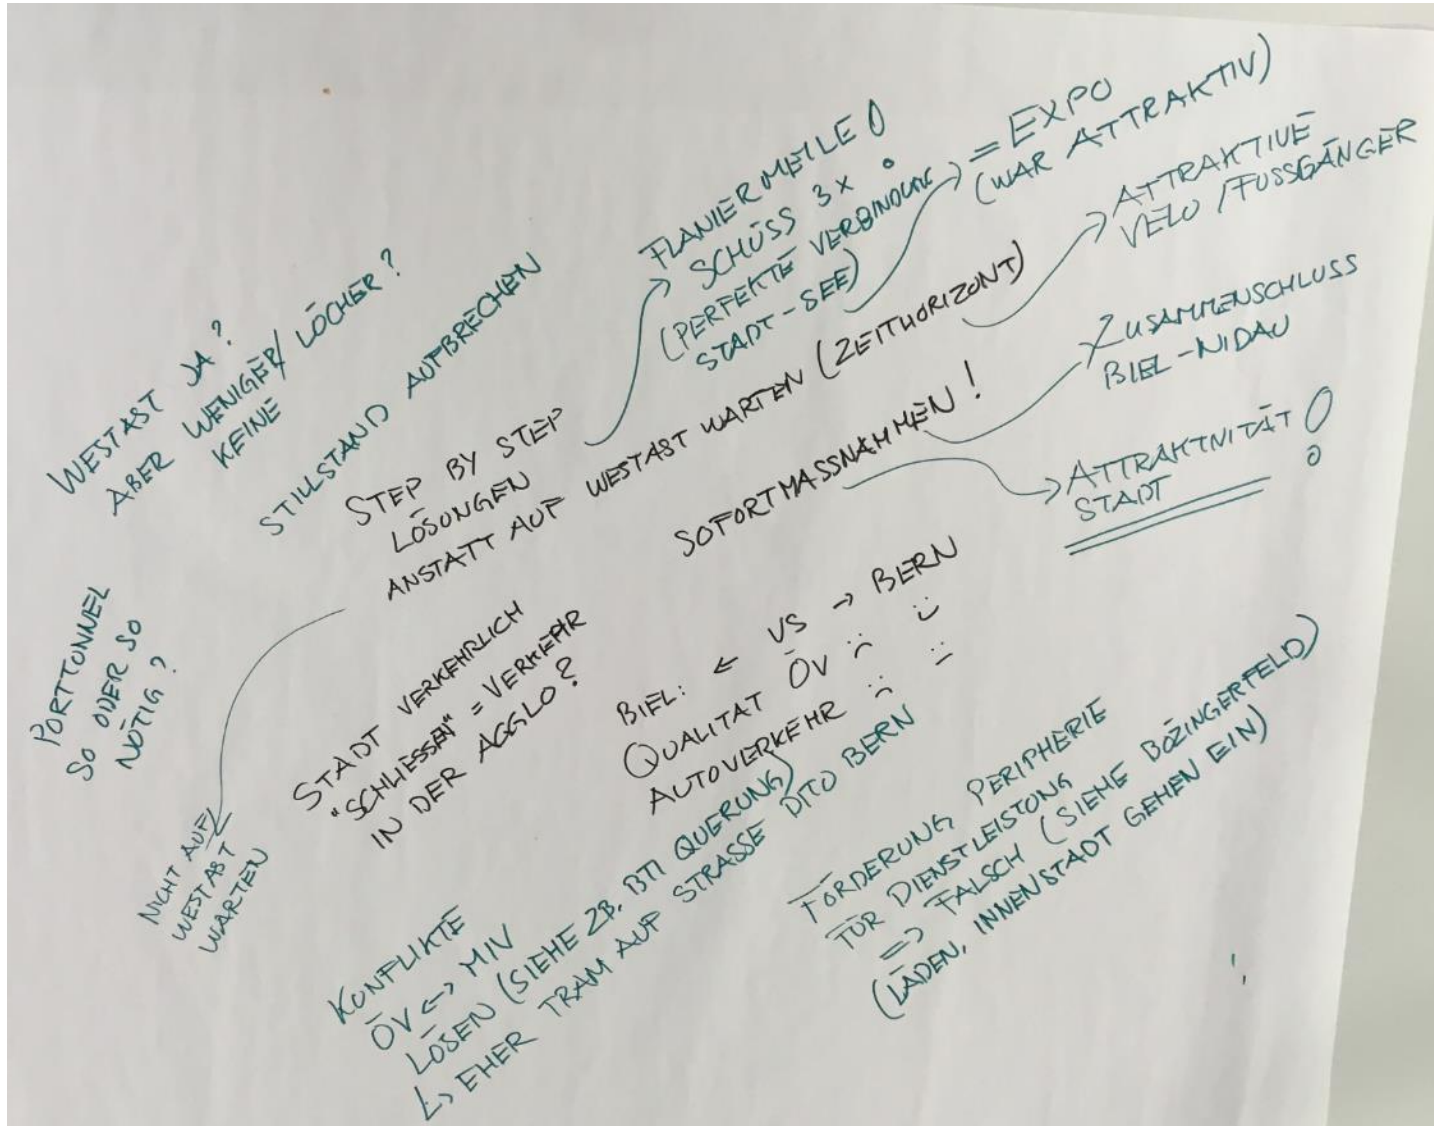 WESTAST JA?
ABER WENIGER/ LÖCHER?
KEINE
STILLSTAND AUFBRECHEN
STEP BY STEP
LÖSUNGEN
ANSTATT AUF WESTAST WARTEN (ZEITHORIZONT)
FLANIERMEILE!
SCHÜSS 3x
(PERFEKTE VERBINDUNG
STADT-SEE)
= EXPO
(WAR ATTRAKTIV)
ATTRAKTIVE
VELO / FUSSGÄNGER
SOFORTMASSNAMMEN!
ZUSAMMENSCHLUSS
BIEL-NIDAU
ATTRAKTIVITÄT!
STADT
PORTTUNNEL
SO ODER SO
NÖTIG?
NICHT AUF
WESTAST
WARTEN
STADT VERKEHRLICH
"SCHLIESSEN" = VERKEHR
IN DER AGGLO?
BIEL: ← VS → BERN
QUALITÄT ÖV :( :)
AUTOVERKEHR :( :|
KONFLIKTE
ÖV ↔ MIV
LÖSEN (SIEHE ZB. BTI QUERUNG)
↳ EHER TRAM AUF STRASSE DITO BERN
FÖRDERUNG PERIPHERIE
FÜR DIENSTLEISTUNG
=> FALSCH (SIEHE BÖZINGERFELD)
(LÄDEN, INNENSTADT GEHEN EIN)